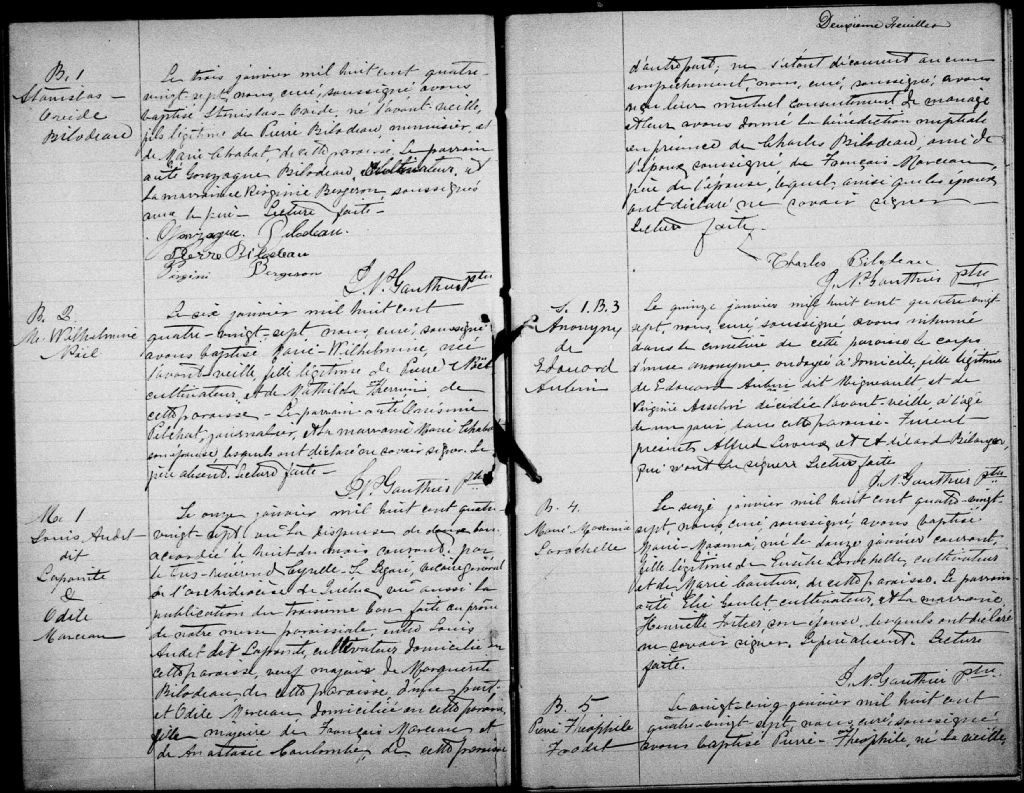 B. 1
Stanislas-
Ovide
Bilodeau
Le trois janvier mil huit cent quatre-
vingt-sept, nous, curé, soussigné avons
baptisé Stanislas-Ovide, né l'avant-veille,
fils légitime de Pierre Bilodeau, menuisier, et
de Marie Chabot, de cette paroisse. Le parrain
a été Gonzague Bilodeau, cultivateur, et
la marraine Virginie Bergeron, soussignés
avec le père - Lecture faite -
Gonzague Bilodeau.
Pierre Bilodeau
Bergeron
J. N. Gauthier ptre
B. 2.
M. Wilhelmine
Le six janvier mil huit cent
quatre-vingt-sept, nous, curé, soussigné
avons baptisé Marie-Wilhelmine, née
l'avant-veille, fille légitime de Pierre
cultivateur, et de Mathilde Therrien de
cette paroisse - Le parrain a été Onésime
journalier, et la marraine Marie Chabot
son épouse, lesquels ont déclaré ne savoir signer. Le
père absent. Lecture faite -
J. N. Gauthier ptre
M. 1
Louis Audet
dit
Lapointe
&
Odile
Marceau
Le onze janvier mil huit cent quatre-
vingt-sept, vu la dispense de deux bans
accordée le huit du mois courant par
le très-révérend Cyrille-E. Légaré, vicaire général
de l'archidiocèse de Québec, vu aussi la
publication du troisième ban faite au prône
de notre messe paroissiale, entre Louis
Audet dit Lapointe, cultivateur, domicilié en
cette paroisse, veuf majeur de Marguerite
Bilodeau, de cette paroisse, d'une part;
et Odile Marceau, domiciliée en cette paroisse,
fille majeure de François Marceau et
de Anastasie Coulombe, de cette paroisse
Deuxième Feuillet
d'autre part; ne s'étant découvert aucun
empêchement, nous, curé, soussigné, avons
reçu leur mutuel consentement de mariage
et leur avons donné la bénédiction nuptiale
en présence de Charles Bilodeau, ami de
l'époux soussigné de François Marceau
père de l'épouse, lequel ainsi que les époux
ont déclaré ne savoir signer
Lecture faite.
Charles Bilodeau
J. N. Gauthier ptre
S. 1. B. 3
Anonyme
de
Edouard
Aubin
Le quinze janvier mil huit cent quatre-vingt
sept, nous, curé, soussigné, avons inhumé
dans le cimetière de cette paroisse le corps
d'une anonyme ondoyée à domicile, fille légitime
de Edouard Aubin dit Migneault et de
Virginie Asselin décédée l'avant-veille, à l'âge
de un jour dans cette paroisse. Furent
présents Alfred Leroux et Bélanger,
qui signer. Lecture faite.
J. N. Gauthier ptre
B. 4.
Marie
Larochelle
Le seize janvier mil huit cent quatre-vingt-
sept, nous, curé, soussigné, avons baptisé
née le douze janvier courant
fille légitime de Larochelle, cultivateur
et de Marie Couture, de cette paroisse. Le parrain
a été Elie Goulet cultivateur, et la marraine
Henriette son épouse, lesquels ont déclaré
ne savoir signer. Le père absent. Lecture
faite.
J. N. Gauthier ptre
B. 5
Pierre Théophile
Le vingt-cinq janvier mil huit cent
quatre-vingt-sept, nous, curé, soussigné
avons baptisé Pierre-Théophile, né la veille,